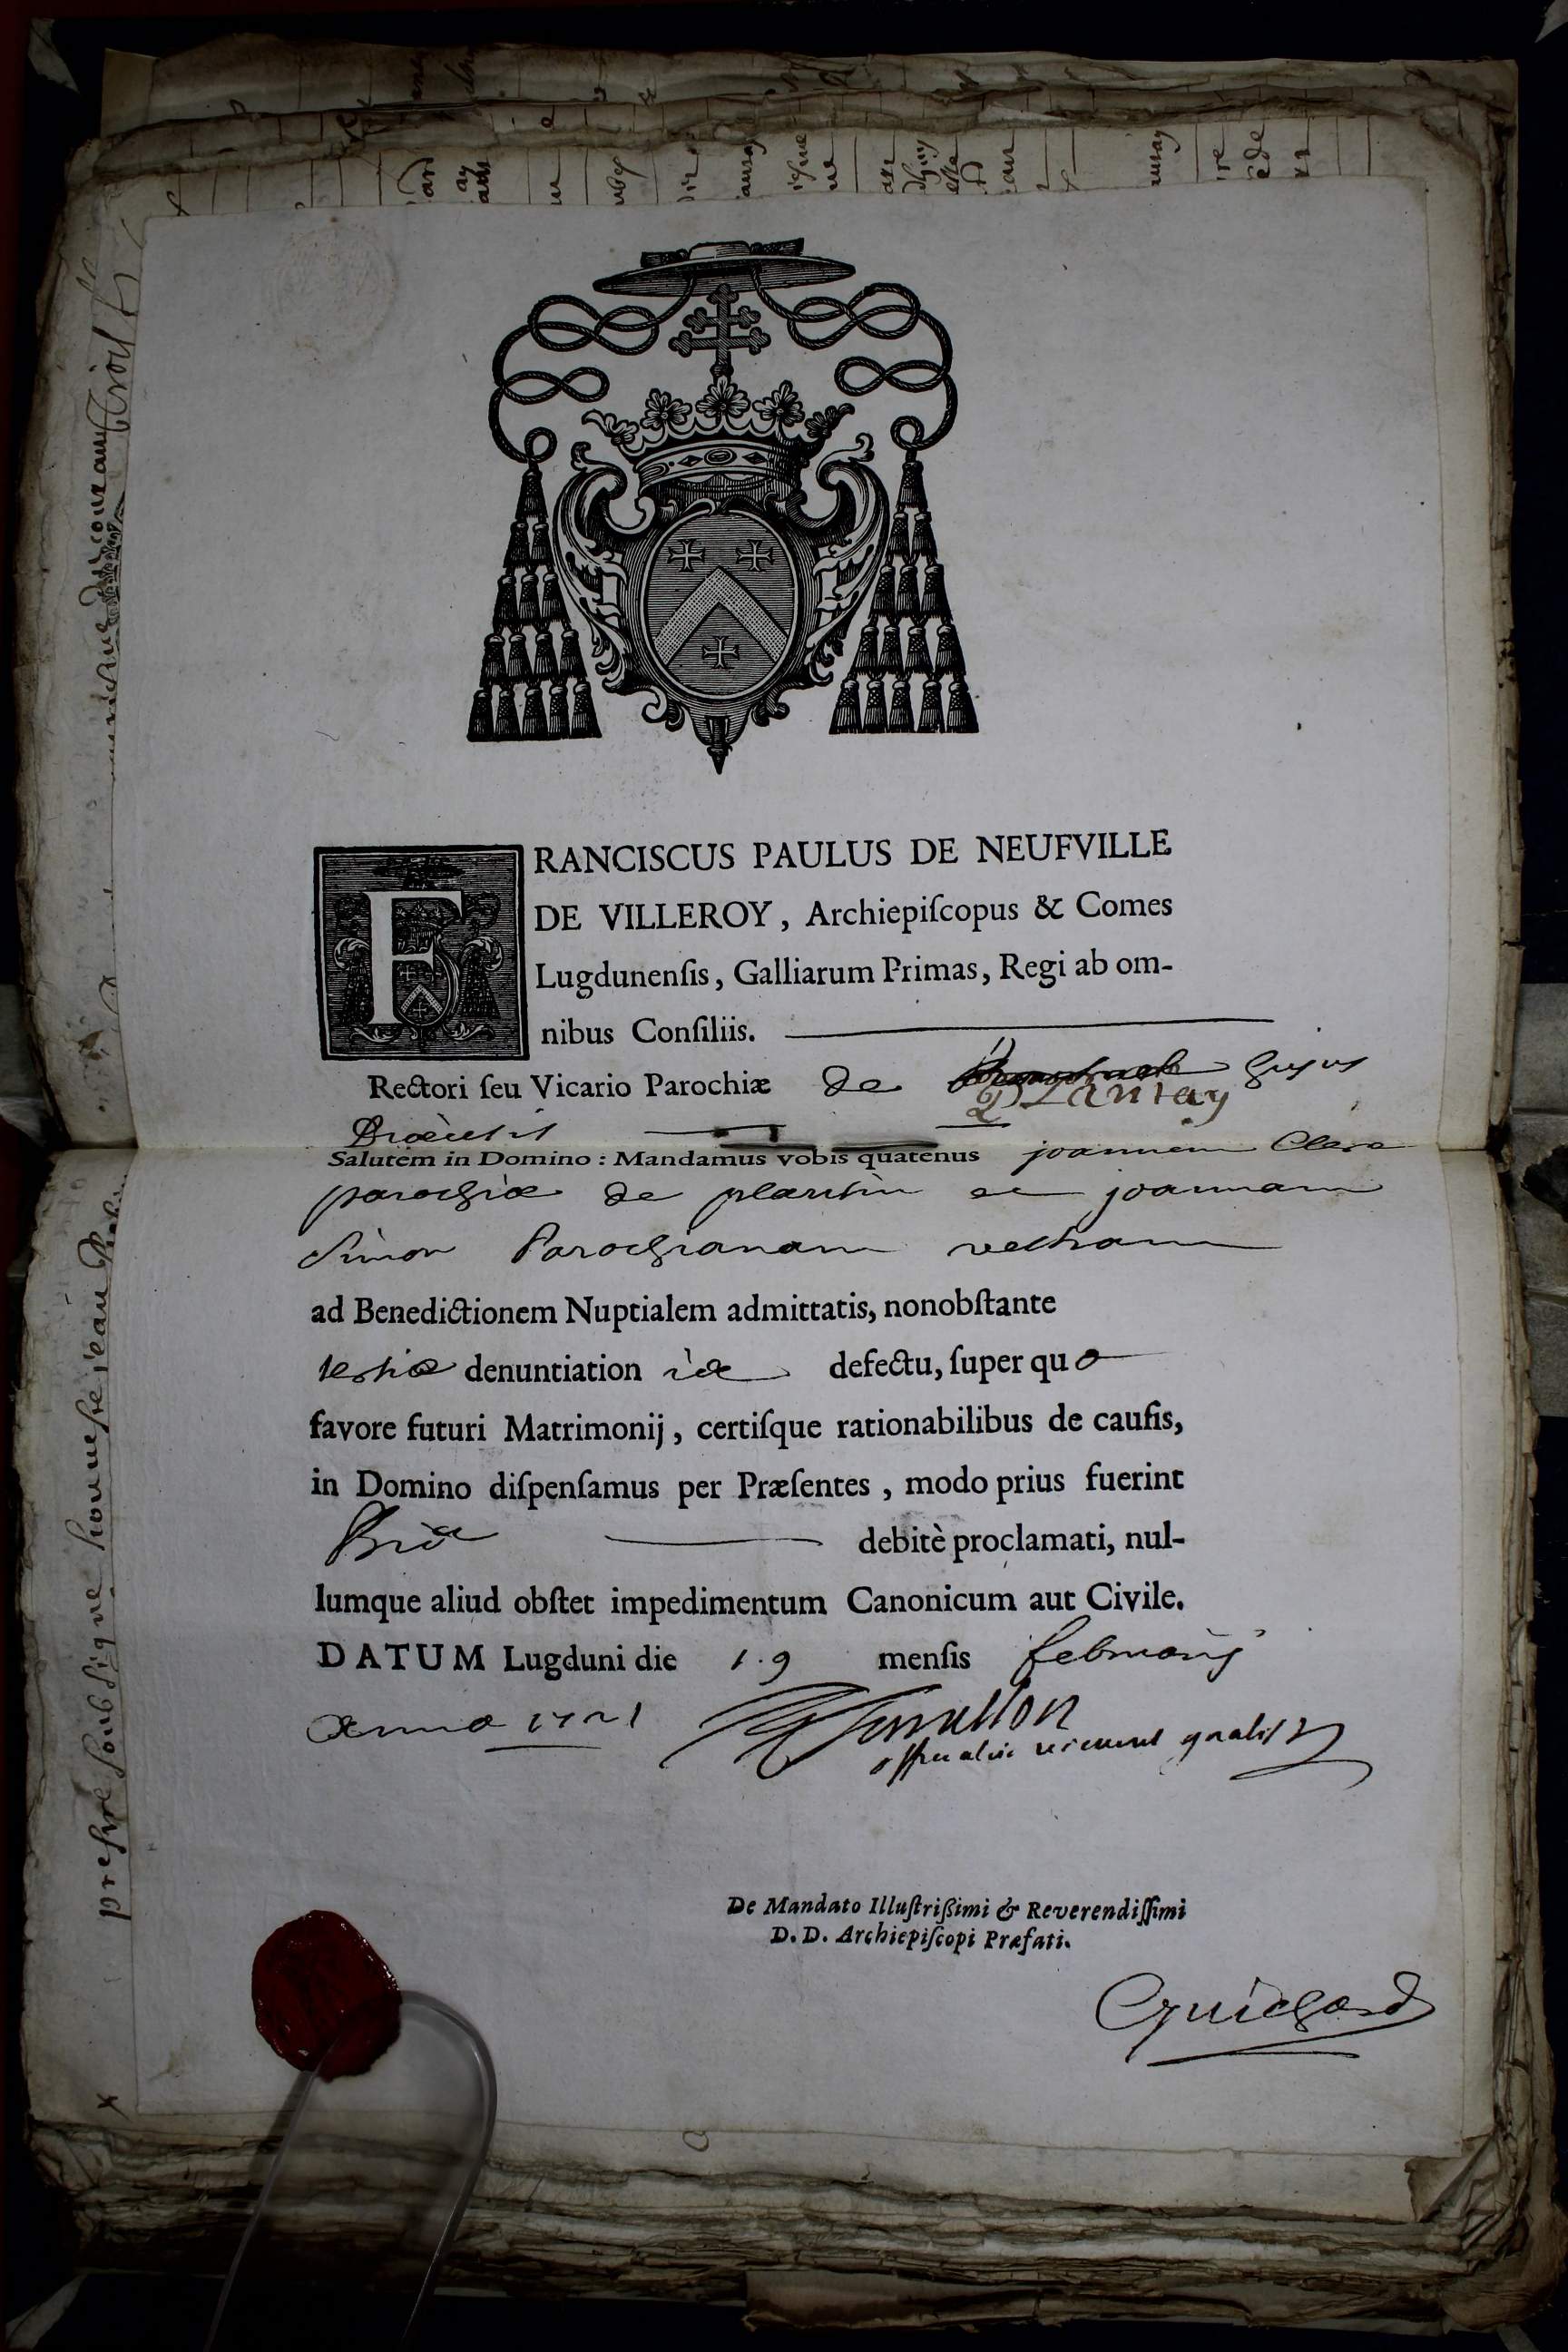 FRANCISCUS PAULUS DE NEUFVILLE
DE VILLEROY, Archiepiſcopus & Comes
Lugdunenſis, Galliarum Primas, Regi ab om-
nibus Conſiliis.
Rectori ſeu Vicario Parochiæ de Plantay hujus
Diœcesis
Salutem in Domino : Mandamus vobis quatenus joannem Clere
parochiæ de plantin et joannam
Simon Parochianam vestram
ad Benedictionem Nuptialem admittatis, nonobſtante
tertiæ denuntiationiæ defectu, ſuper quo
favore futuri Matrimonij, certiſque rationabilibus de cauſis,
in Domino diſpenſamus per Præſentes, modo prius fuerint
Bis debitè proclamati, nul-
lumque aliud obſtet impedimentum Canonicum aut Civile.
DATUM Lugduni die 19 menſis februarij
Anno 1721
De Mandato Illuſtriſſimi & Reverendiſſimi
D. D. Archiepiſcopi Præfati.
Guichard
prestre soubsigne honneste jean